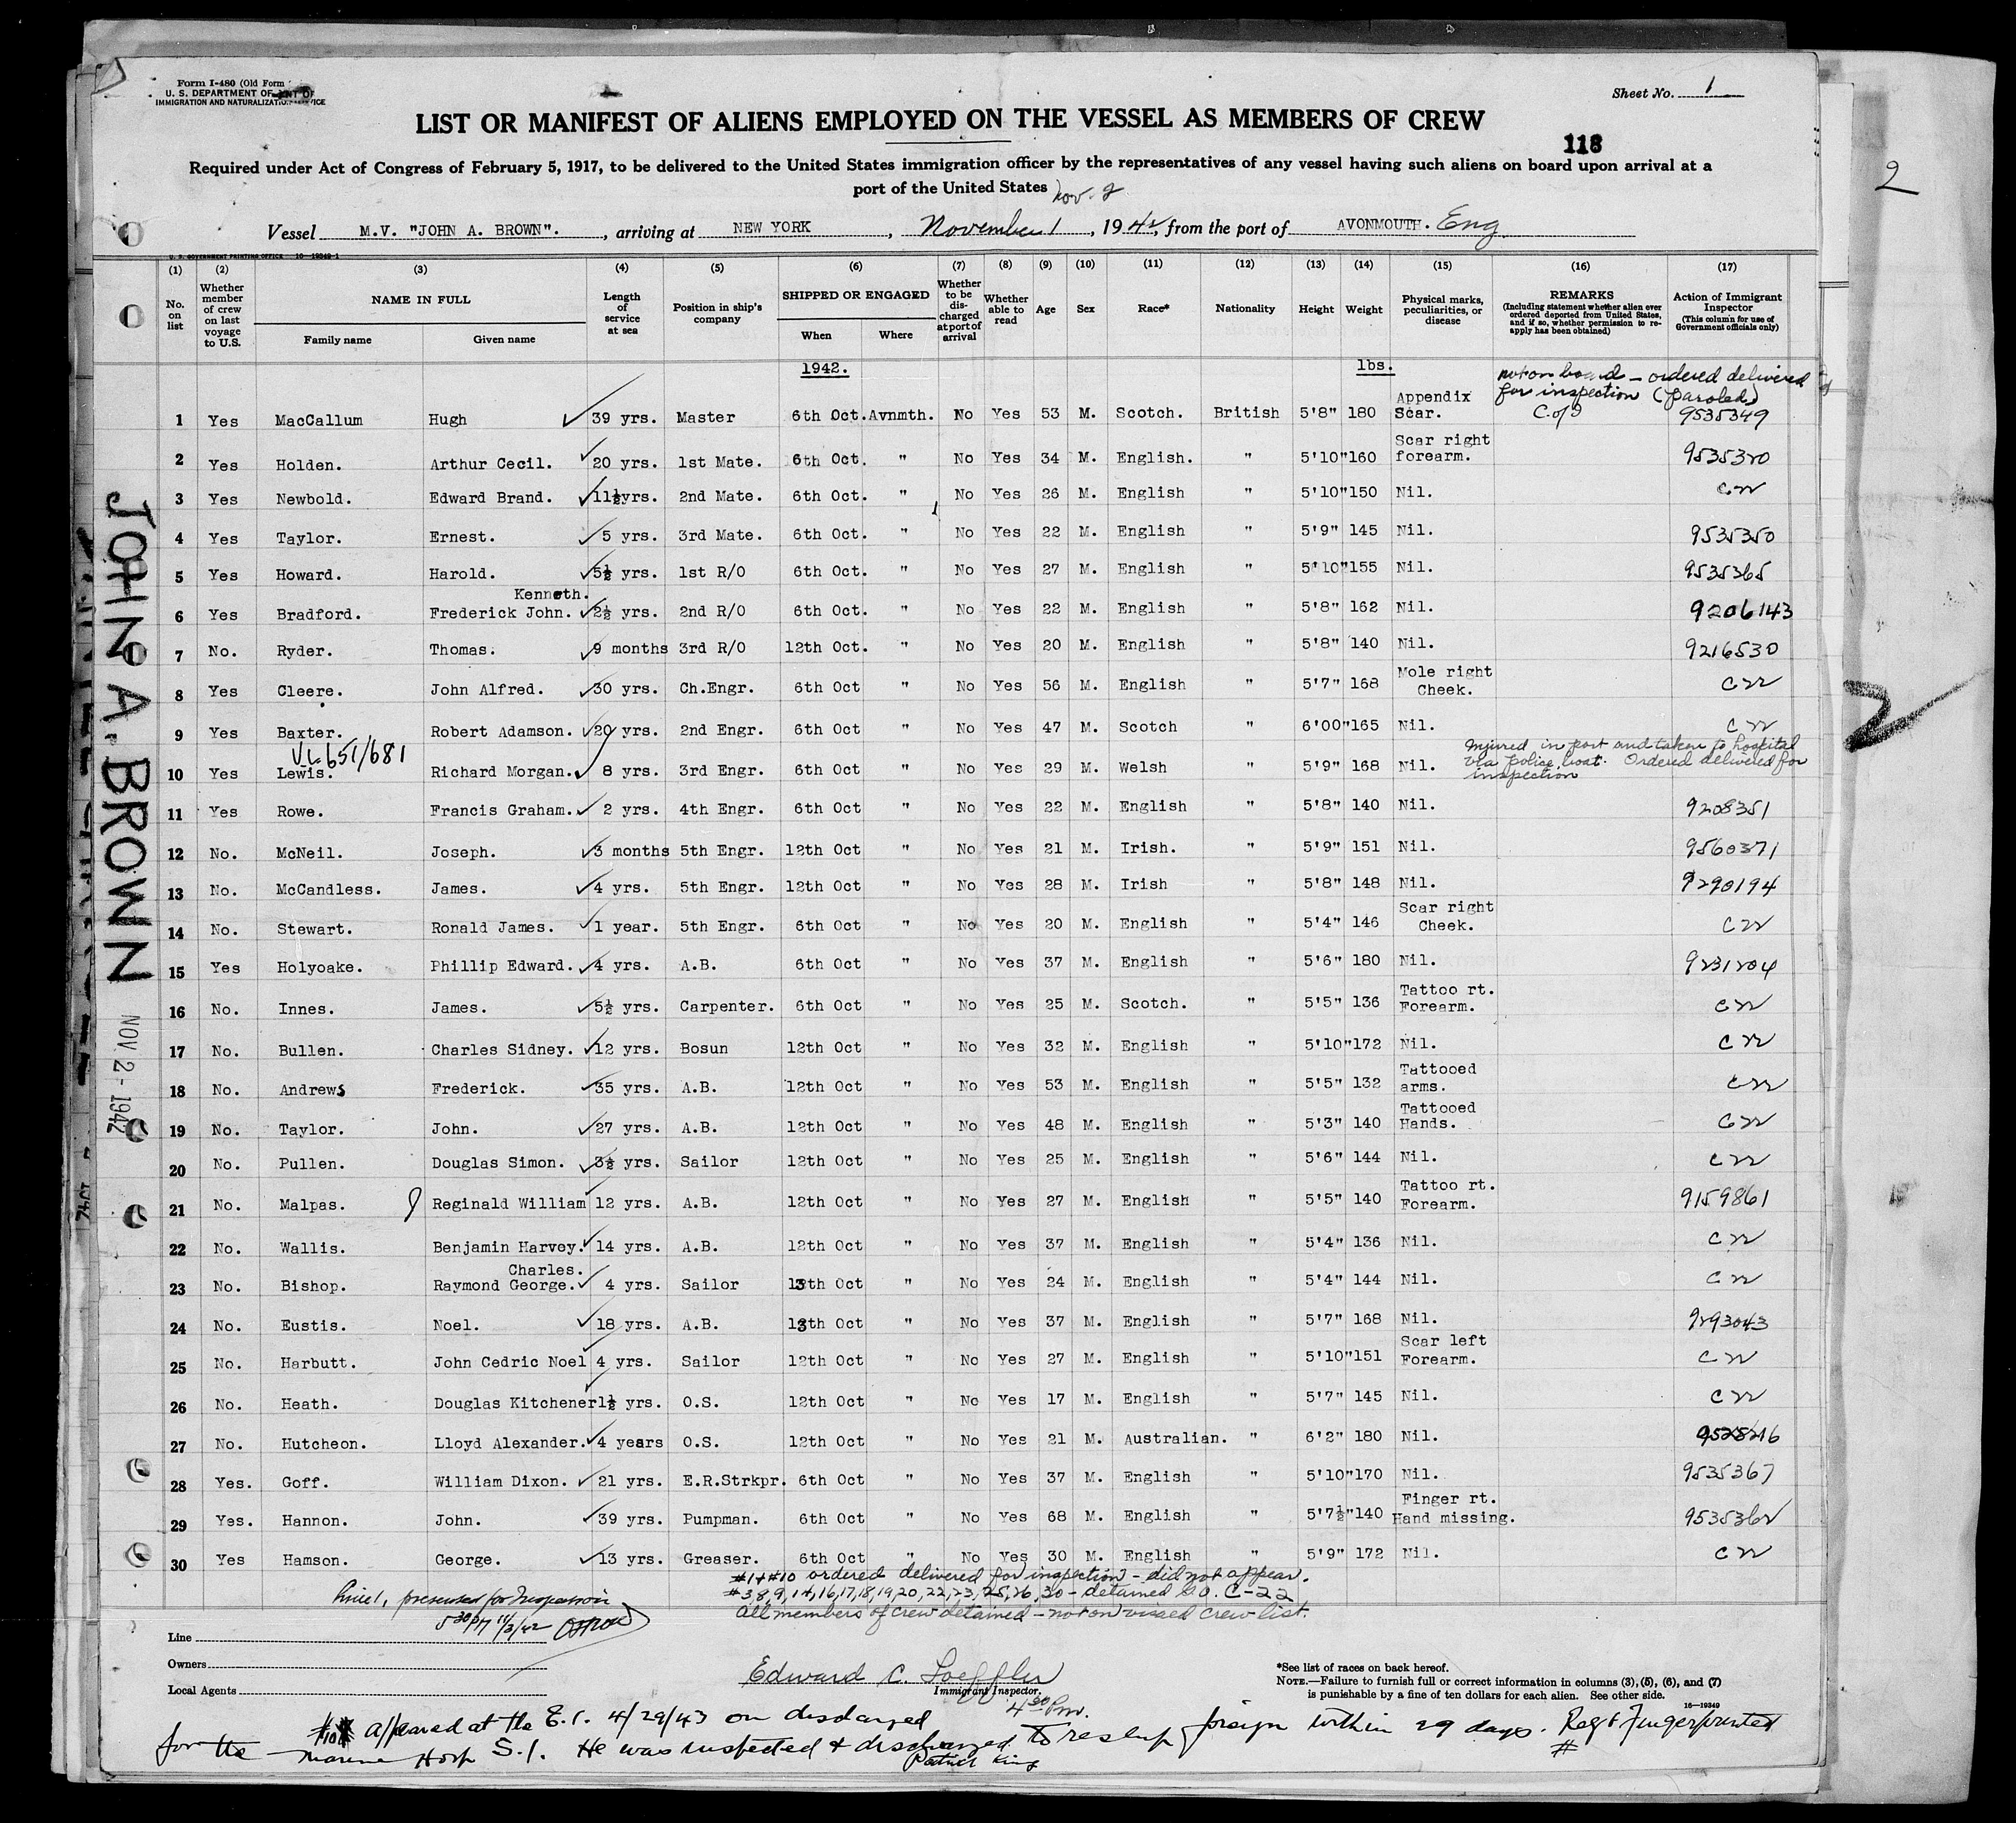 Form I-480 (Old Form
U. S. DEPARTMENT OF
IMMIGRATION AND NATURALIZATION SERVICE
Sheet No. 1
LIST OR MANIFEST OF ALIENS EMPLOYED ON THE VESSEL AS MEMBERS OF CREW
118
Required under Act of Congress of February 5, 1917, to be delivered to the United States immigration officer by the representatives of any vessel having such aliens on board upon arrival at a
port of the United States Nov. 2
2
Vessel M.V. "JOHN A. BROWN". , arriving at NEW YORK , November 1 , 1942, from the port of AVONMOUTH. Eng
U. S. GOVERNMENT PRINTING OFFICE 16—19349-1
(1) (2) (3) (4) (5) (6) (7) (8) (9) (10) (11) (12) (13) (14) (15) (16) (17)
No. on list
Whether member of crew on last voyage to U.S.
NAME IN FULL
Family name Given name
Length of service at sea
Position in ship's company
SHIPPED OR ENGAGED
When Where
Whether to be discharged at port of arrival
Whether able to read
Age Sex Race* Nationality Height Weight
Physical marks, peculiarities, or disease
REMARKS
(Including statement whether alien ever ordered deported from United States, and if so, whether permission to reapply has been obtained)
Action of Immigrant Inspector
(This column for use of Government officials only)
1942. lbs.
not on board – ordered delivered
for inspection (paroled)
1 Yes MacCallum Hugh 39 yrs. Master 6th Oct. Avnmth. No Yes 53 M. Scotch. British 5'8" 180 Appendix Scar. 9535349
2 Yes Holden. Arthur Cecil. 20 yrs. 1st Mate. 6th Oct. " No Yes 34 M. English. " 5'10" 160 Scar right forearm. 9535320
3 Yes Newbold. Edward Brand. 11½yrs. 2nd Mate. 6th Oct. " No Yes 26 M. English " 5'10" 150 Nil. C 22
4 Yes Taylor. Ernest. 5 yrs. 3rd Mate. 6th Oct. " No Yes 22 M. English " 5'9" 145 Nil. 9535350
5 Yes Howard. Harold. 5½ yrs. 1st R/O 6th Oct. " No Yes 27 M. English " 5'10" 155 Nil. 9535365
6 Yes Bradford. Kenneth. Frederick John. 2½ yrs. 2nd R/O 6th Oct. " No Yes 22 M. English " 5'8" 162 Nil. 9206143
7 No. Ryder. Thomas. 9 months 3rd R/O 12th Oct. " No Yes 20 M. English " 5'8" 140 Nil. 9216530
8 Yes Cleere. John Alfred. 30 yrs. Ch.Engr. 6th Oct " No Yes 56 M. English " 5'7" 168 Mole right Cheek. C 22
9 Yes Baxter. Robert Adamson. 20 yrs. 2nd Engr. 6th Oct " No Yes 47 M. Scotch " 6'00" 165 Nil. C 22
V.L 651/681
Injured in port and taken to hospital
via police boat. Ordered delivered for
inspection
10 Yes Lewis. Richard Morgan. 8 yrs. 3rd Engr. 6th Oct " No Yes 29 M. Welsh " 5'9" 168 Nil.
11 Yes Rowe. Francis Graham. 2 yrs. 4th Engr. 6th Oct " No Yes 22 M. English " 5'8" 140 Nil. 9208351
12 No. McNeil. Joseph. 3 months 5th Engr. 12th Oct " No Yes 21 M. Irish. " 5'9" 151 Nil. 9560371
13 No. McCandless. James. 4 yrs. 5th Engr. 12th Oct " No Yes 28 M. Irish " 5'8" 148 Nil. 9290194
14 No. Stewart. Ronald James. 1 year. 5th Engr. 6th Oct " No Yes 20 M. English " 5'4" 146 Scar right Cheek. C 22
15 Yes Holyoake. Phillip Edward. 4 yrs. A.B. 6th Oct " No Yes 37 M. English " 5'6" 180 Nil. 9231204
16 No. Innes. James. 5½ yrs. Carpenter. 6th Oct " No Yes 25 M. Scotch. " 5'5" 136 Tattoo rt. Forearm. C 22
17 No. Bullen. Charles Sidney. 12 yrs. Bosun 12th Oct " No Yes 32 M. English " 5'10" 172 Nil. C 22
18 No. Andrews Frederick. 35 yrs. A.B. 12th Oct " No Yes 53 M. English " 5'5" 132 Tattooed arms. C 22
19 No. Taylor. John. 27 yrs. A.B. 12th Oct " No Yes 48 M. English " 5'3" 140 Tattooed Hands. C 22
20 No. Pullen. Douglas Simon. 3½ yrs. Sailor 12th Oct " No Yes 25 M. English " 5'6" 144 Nil. C 22
21 No. Malpas. Reginald William 12 yrs. A.B. 12th Oct " No Yes 27 M. English " 5'5" 140 Tattoo rt. Forearm. 9159861
22 No. Wallis. Benjamin Harvey. 14 yrs. A.B. 12th Oct " No Yes 37 M. English " 5'4" 136 Nil. C 22
23 No. Bishop. Charles. Raymond George. 4 yrs. Sailor 13th Oct " No Yes 24 M. English " 5'4" 144 Nil. C 22
24 No. Eustis. Noel. 18 yrs. A.B. 13th Oct " No Yes 37 M. English " 5'7" 168 Nil. 9293043
25 No. Harbutt. John Cedric Noel 4 yrs. Sailor 12th Oct " No Yes 27 M. English " 5'10" 151 Scar left Forearm. C 22
26 No. Heath. Douglas Kitchener 1½ yrs. O.S. 12th Oct " No Yes 17 M. English " 5'7" 145 Nil. C 22
27 No. Hutcheon. Lloyd Alexander. 4 years O.S. 12th Oct " No Yes 21 M. Australian. " 6'2" 180 Nil. 9528216
28 Yes. Goff. William Dixon. 21 yrs. E.R.Strkpr. 6th Oct " No Yes 37 M. English " 5'10" 170 Nil. 9535367
29 Yes. Hannon. John. 39 yrs. Pumpman. 6th Oct " No Yes 68 M. English " 5'7½" 140 Finger rt. Hand missing. 9535362
30 Yes Hamson. George. 13 yrs. Greaser. 6th Oct " No Yes 30 M. English " 5'9" 172 Nil. C 22
#1 + #10 ordered delivered for inspection – did not appear.
#3,8,9,14,16,17,18,19,20,22,23,25,26,30 – detained C-22
All members of crew detained – not on visaed crew list.
Line 1, presented for Inspection
5 30 PM 11/3/42
Line
Owners
Local Agents
Edward C. Loeffler
Immigrant Inspector.
4 30 Pm.
*See list of races on back hereof.
NOTE.—Failure to furnish full or correct information in columns (3), (5), (6), and (7)
is punishable by a fine of ten dollars for each alien. See other side.
16—19349
#10 appeared at the E.I. 4/29/43 on discharged
for the Marine Hosp S.I. He was inspected & discharged to reship foreign within 29 days. Reg & Fingerprinted
Patrick King #
JOHN A. BROWN
NOV 2 - 1942
2